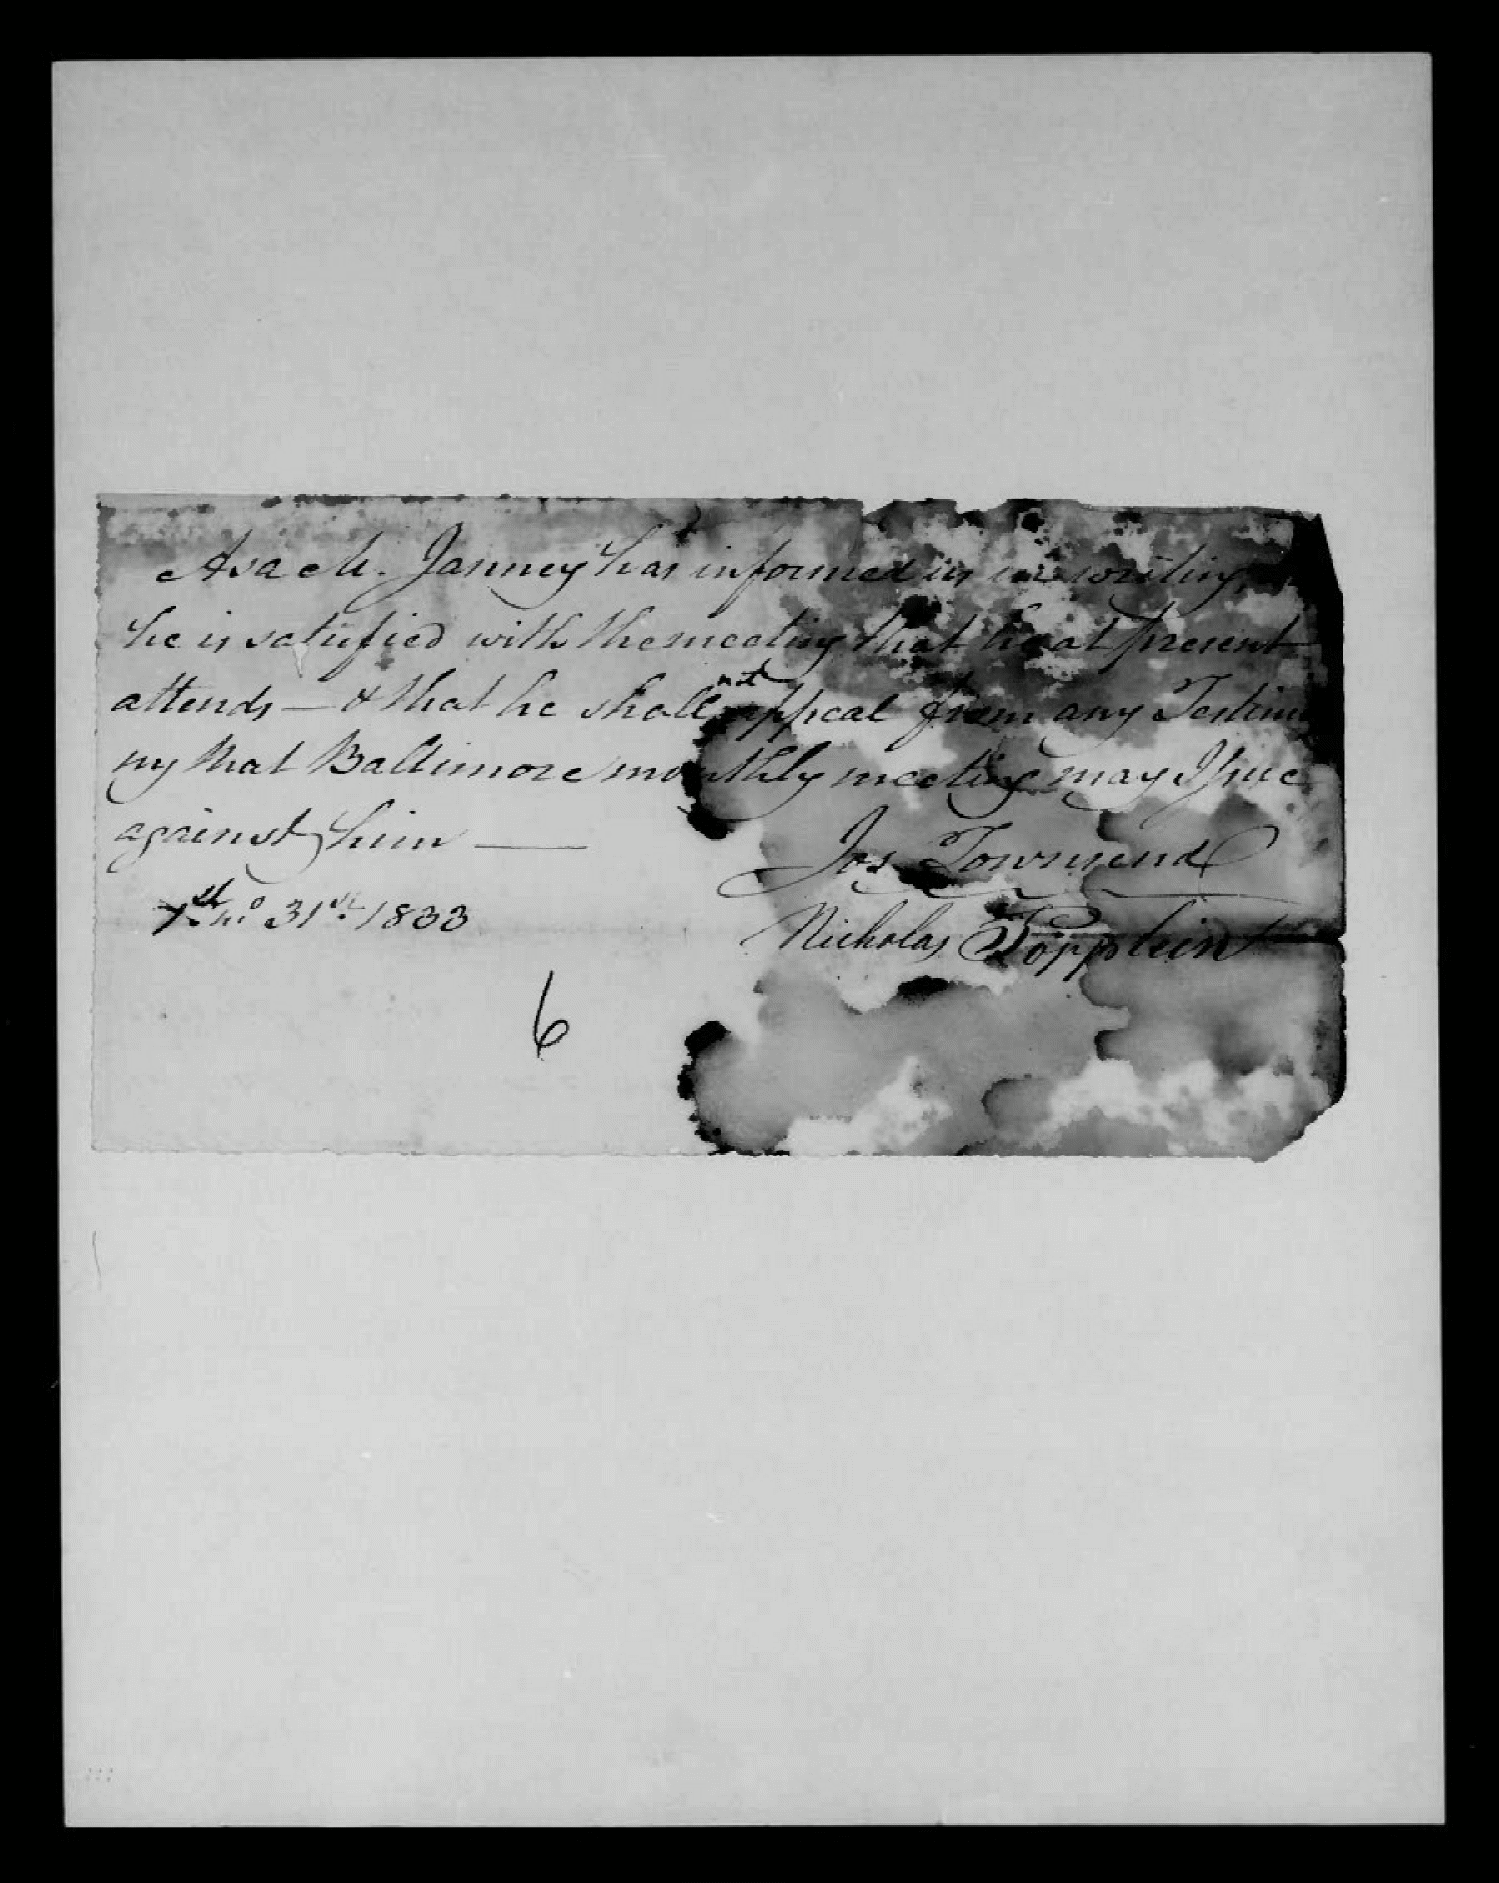 Asa M. Janney has informed us in writing
he is satisfied with the meeting that he at present
attends — & that he shall not appeal from any Testimo
ny that Baltimore monthly meeting may Issue
against him —
Jos Townsend
7th mo 31st 1833
Nicholas Popplein
6